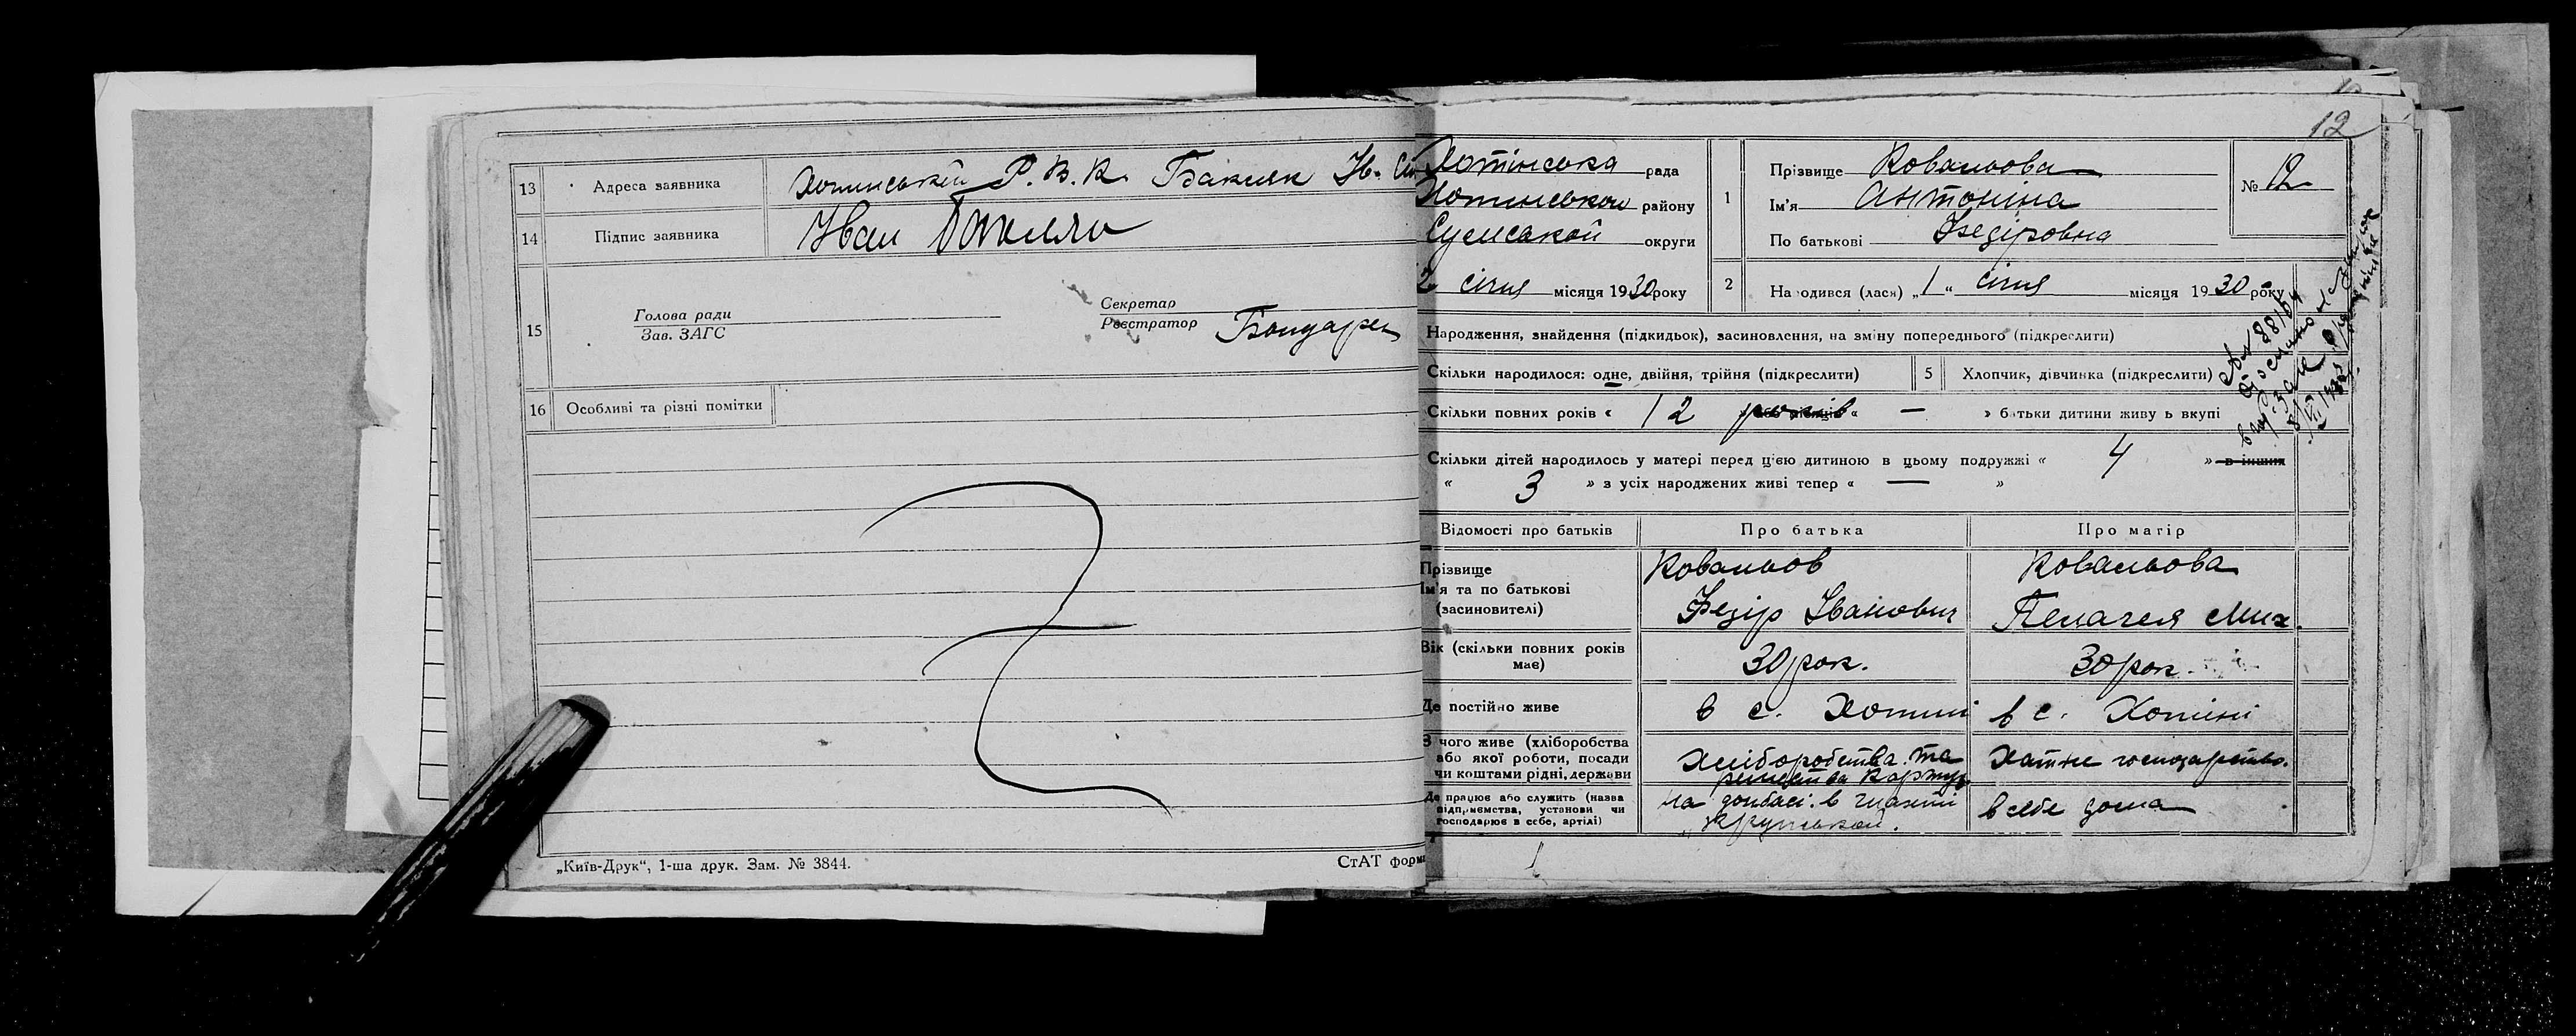 13 Адреса заявника Хотинський Р.В.К. Бакиєк Ив. 
14 Підпис заявника Иван
15 Голова ради
Зав. ЗАГС
Секретар
Реєстратор Бондарен
16 Особливі та різні помітки
„Київ-Друк“, 1-ша друк. Зам. № 3844.
СтАТ форм
12
Хотінська рада
Хотинськои району
Сумськой округи
2 січня місяця 1930 року
1 Прізвище Ковальова
Ім'я Антоніна
По батькові Федіровна
№ 12
2 Народився (лася) „1“ січня місяця 1930 року
Народження, знайдення (підкидьок), засиновлення, на зміну попереднього (підкреслити)
Скільки народилося: одне, двійня, трійня (підкреслити)
5 Хлопчик, дівчинка (підкреслити)
Скільки повних років « 12 років « — » батьки дитини живу ь вкупі
Скільки дітей народилось у матері перед цією дитиною в цьому подружжі « 4 » в інших
« 3 » з усіх народжених живі тепер « — »
Відомості про батьків Про батька Про матір
Прізвище Ковальов Ковальова
Ім'я та по батькові
(засиновителі) Федір Іванович Пелагея Мих.
Вік (скільки повних років
має) 30 рок. 30 рок.
Де постійно живе в с. Хотині в с. Хотіні
З чого живе (хліборобства
або якої роботи, посади
чи коштами рідні, держави Хліборобства та Хатнє господарство.
Де працює або служить (назва
підприємства, установи чи
господарює в себе, артілі) на донбасі в шахті в себе дома